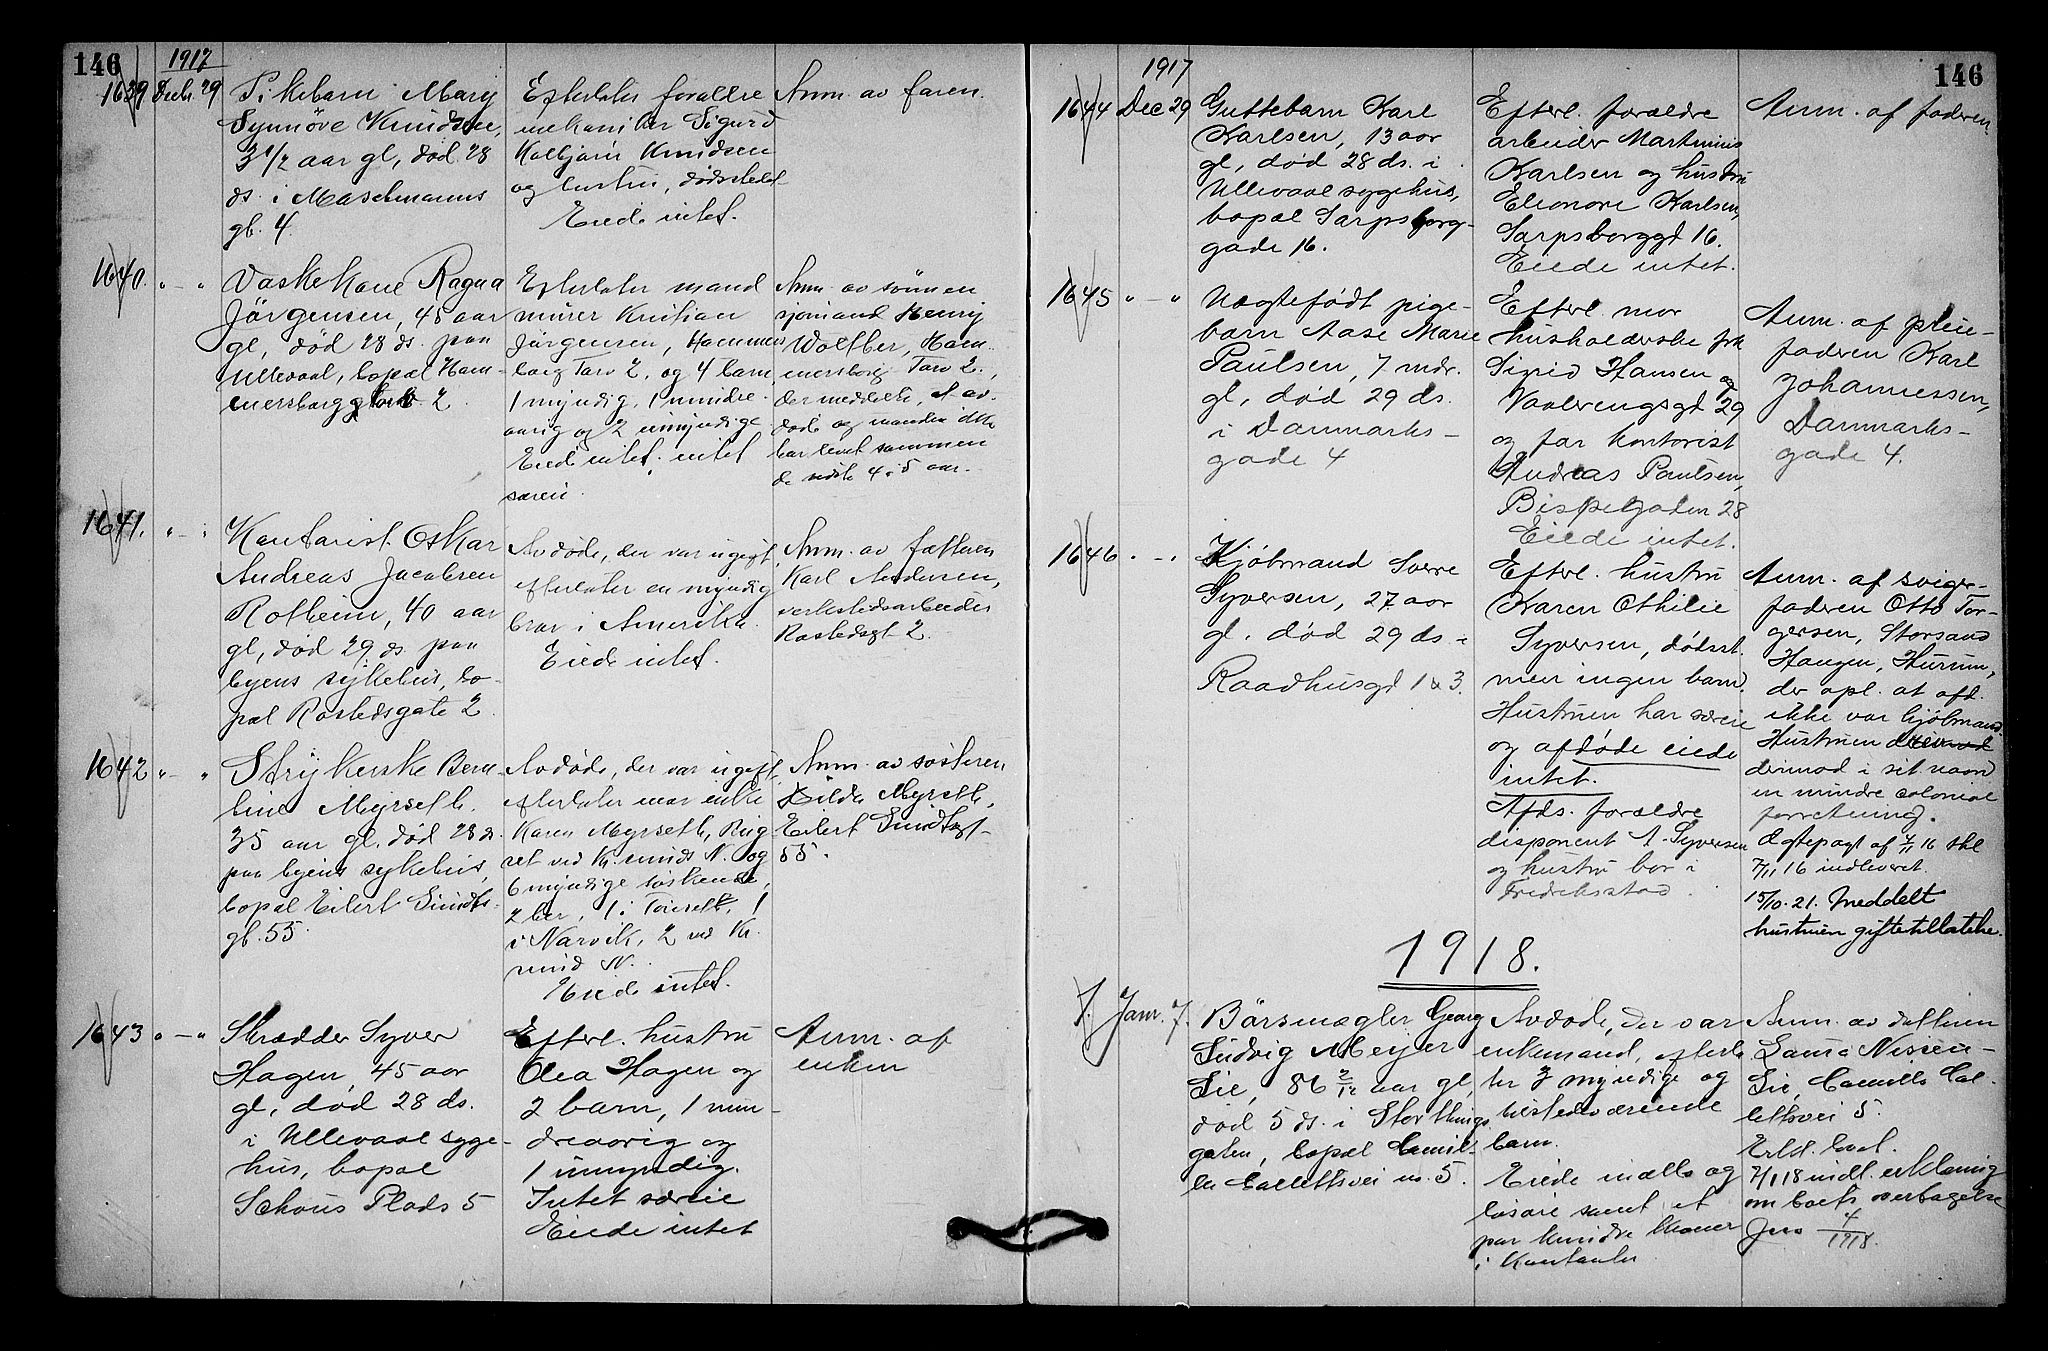 146
1917
1639 Decbr. 29
Pikebarn Mary
Synnöve Knudsen,
3 1/2 aar gl, död 28
ds. i Maschmanns
gt. 4.
Efterlater forældre
mekaniker Sigurd
Kolbjørn Knudsen
og hustru, dödsstedet
Eiede intet.
Anm. av faren.
1640. " - "
Vaskekone Ragna
Jörgensen, 45 aar
gl, död 28 ds. paa
Ullevaal, bopæl Ham-
mersborg torv 2.
Efterlater mand
murer Kristian
Jörgensen, Hammers
borg Torv 2, og 4 barn,
1 myndig, 1 mindre-
aarig og 2 umyndige
Eiede intet; intet
særeie.
Anm. av sönnen
sjömand Henry
Wolther, Ham-
mersborg Torv 2,
der meddelte, at av-
döde og manden ikke
har levet sammen
de sidste 4 à 5 aar.
1641. " - "
Kontorist Oskar
Andreas Jacobsen
Rotheim, 40 aar
gl, död 29 ds. paa
byens sykehus, bo-
pæl Rostedsgate 2
Avdöde, der var ugift,
efterlater en myndig
bror i Amerika.
Eiede intet.
Anm. av fætteren
Karl Andersen,
verkstedsarbeider
Rostedsgt 2.
1642 " - "
Strykerske Bern-
tine Myrseth.
35 aar gl, död 28 ds
paa byens sykehus,
bopæl Eilert Sundts-
gt. 55.
Avdöde, der var ugift,
efterlater mor enke
Karen Myrseth, Ring
set ved Kr.sunds N. og
6 myndige söskende,
2 her, 1 i 1
i Narvik, 2 ved Kr.
sund N.
Eiede intet.
Anm. av sösteren
Hilda Myrseth,
Eilert Sundtsgt-
55.
1643 " - "
Skrædder Syver
Hagen, 45 aar
gl, död 28 ds.
i Ullevaal syge-
hus, bopæl
Schous Plads 5
Efterl. hustru
Olea Hagen og
2 barn, 1 min-
dreaarig og
1 umyndig.
Intet særeie
Eiede intet
Anm. af
enken
146
1917
1644 Dec 29
Guttebarn Karl
Karlsen, 13 aar
gl, död 28 ds. i
Ullevaal sygehus,
bopæl Sarpsborg-
gade 16.
Efterl. forældre
arbeider Martinius
Karlsen og hustru
Eleonore Karlsen,
Sarpsborggd 16.
Eiede intet.
Anm. af faderen
1645 " - "
Uægtefødt pige-
barn Aase Marie
Paulsen, 7 mdr.
gl, död 29 ds.
i Danmarks-
gade 4
Efterl. mor
husholderske frk
Sigrid Hansen
Vaalerengsgd 29
og far kontorist
Andreas Paulsen,
Bispegaden 28
Eiede intet.
Anm. af pleie-
faderen Karl
Johannessen,
Danmarks-
gade 4.
1646 " - "
Kjöbmand Sverre
Syversen, 27 aar
gl. död 29 ds. i
Raadhusgd 1 & 3.
Efterl. hustru
Karen Othilie
Syversen, dödsst.
men ingen barn.
Hustruen har særeie
og afdöde eiede
intet.
Afds. forældre
disponent A. Syversen
og hustru bor i
Fredriksstad.
Anm. af sviger-
faderen Otto Tor-
gersen, Storsand
Haugen, Hurum,
der opl. at afd.
ikke var kjöbmand.
Hustruen
derimod i sit navn
en mindre colonial
forretning.
Ægtepagt af 2/11 16 thl
7/11 16 indleveret.
15/10. 21. Meddelt
hustruen giftetilladelse.
1918.
1. Janr. 7.
Börsmægler Georg
Ludvig Meyer
Lie, 86 2/12 aar gl,
död 5 ds. i Storthings
gaten, bopæl Camil-
la Collettsvei nr. 5.
Avdöde, der var
enkemand, efterla-
ter 3 myndige og
tilstedeværende
barn.
Eiede indbo og
lösöre samt et
par hundre kroner
i kontanter
Anm. av datteren
Laura Nissen-
Lie, Camilla Col-
lettsvei 5.
7/1 18 indl. erklæring
om boets overtagelse
Jno 4/1918.